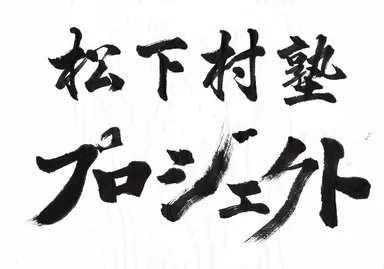 松下村塾
プロジェクト